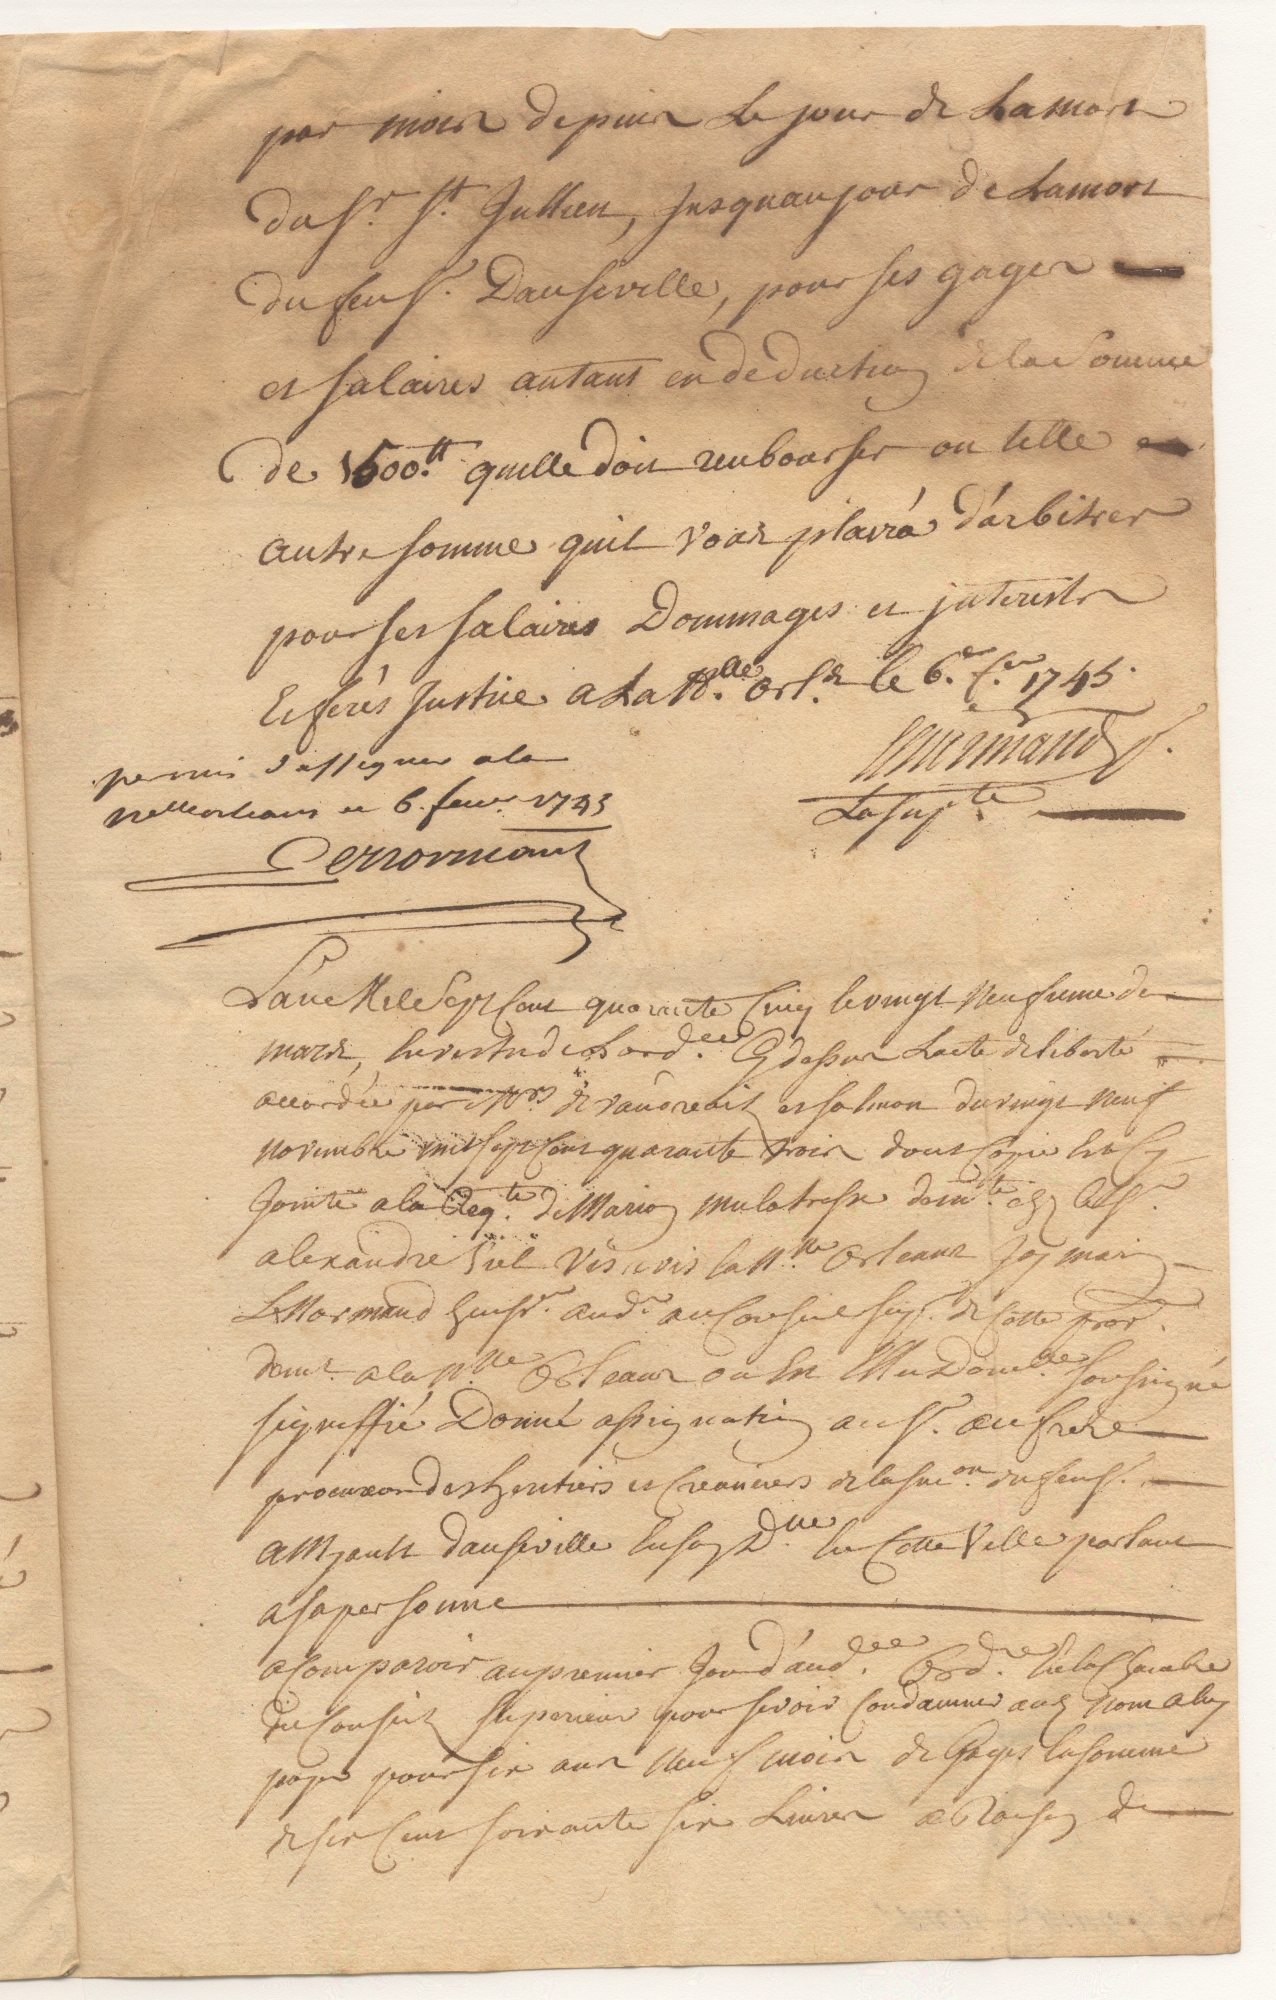 par mois depuis Le jour de La mort
du Sr. St. Jullien, Jusquau jour de La mort
du feu Sr. Dauseville, pour ses gages
et salaires autant en deduction de la Somme
de 1500.tt quelle doit rembourser ou telle
autre somme quil vous plaira d'arbitrer
pour ses salaires Dommages et interests
Et ferés Justice a La Nlle. Orls. le 6.e 1745.
Lenormand
La supte.
permis d'assigner a la
nelleorleans ce 6. feuer. 1745
Lenormant
L'an Mil Sept Cent quarante Cinq le vingt Neufieme de
mars, En vertu de Lordce. Cy dessus Lacte de liberté
accordée par Mrs. de vaudreuil et salmon du vingt Neuf
novembre mil sept Cent quarante trois dont Copie Est Cy
Jointe a la Reqte. de Marion mulatresse demte. chez le Sr.
alexandre Viel vis a vis la Nlle. Orleans Jay marin
LeNormand huisr. audr. au Conseil Supr. de Cette prov.
demt. a la Nlle. Orleans ou Est Elu Domlle. Soussigné
signiffié Donné assignation au Sr. aufrere
procureur des heritiers et Creanciers de la suon. du feu Sr.
a Myault dauseville En son Dlle. En Cette Ville parlant
a sa personne
a Comparoir au premier Jour d'audee. Ordre. En la Chambre
du Conseil Superieur pour se voir Condamner aud. Nom a luy
payer pour six ans Neuf mois de Gages la somme
de six Cent soixante six Livres a Raison de